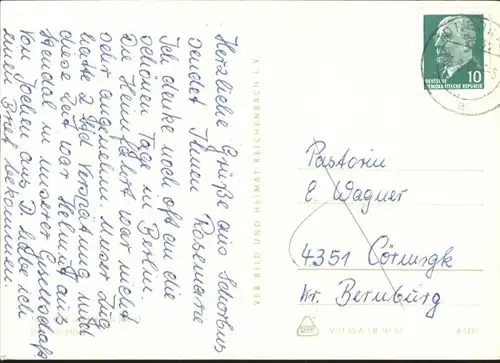 Herzliche Grüße aus Schorbus
sendet Ihnen Rosemarie
Ich denke noch oft an die
schönen Tage in Berlin.
Die Heimfahrt war nicht
sehr angenehm. Unser Zug
hatte 2 Std Verspätung und
diese Zeit war Helmut aus
Stendal in unserer Gesellschaft
Von Jochen aus D. habe ich
einen Brief bekommen.
VEB BILD UND HEIMAT REICHENBACH I. V.
10
DEUTSCHE
DEMOKRATISCHE REPUBLIK
Pastorin
E. Wagner
4351 Cörmigk
Kr. Bernburg